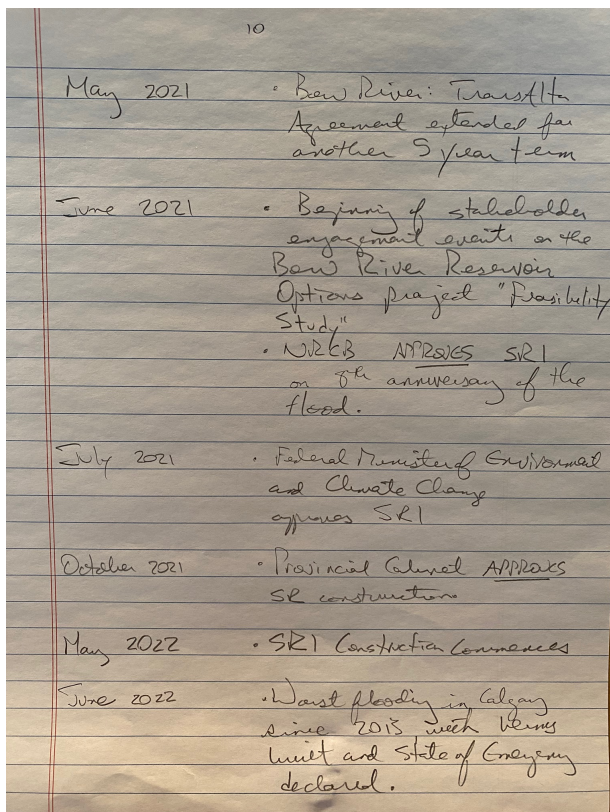 10
May 2021 • Bow River: TransAlta
Agreement extended for
another 5 year term
June 2021 • Beginning of stakeholder
engagement events on the
Bow River Reservoir
Options project "Feasibility
Study"
• NRCB APPROVES SR1
on 8th anniversary of the
flood.
July 2021 • Federal Minister of Environment
and Climate Change
approves SR1
October 2021 • Provincial Cabinet APPROVES
SR construction
May 2022 • SR1 Construction Commences
June 2022 • Worst flooding in Calgary
since 2013 with berms
built and State of Emergency
declared.